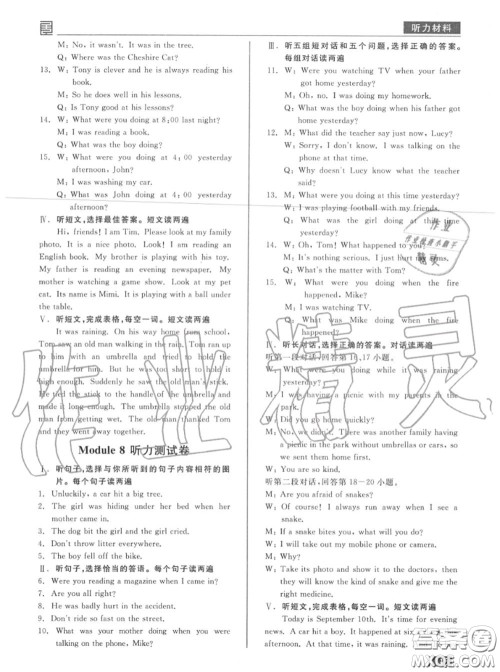 听力材料
M: No, it wasn't. It was in the tree.
Q: Where was the Cheshire Cat?
13. W: Tony is clever and he is always reading his
book.
M: So he does well in all his lessons.
Q: Is Tony good at his lessons?
14. W: What were you doing at 8:00 last night?
M: I was reading a book.
Q: What was the boy doing?
15. W: What were you doing at 4:00 yesterday
afternoon, John?
M: I was washing my car.
Q: What was John doing at 4:00 yesterday
afternoon?
Ⅳ. 听短文,选择最佳答案。短文读两遍
Hi, friends! I am Tim. Please look at my family
photo. It is a nice photo. Look! I am reading an
English book. My brother is playing with his toys.
My father is reading an evening newspaper. My
mother is watching a game show. Look at my pet
cat. Its name is Mimi. It is playing with a ball under
the table.
Ⅴ. 听短文,完成表格,每空一词。短文读两遍
It was raining. On my way home from school,
Tom saw an old man walking in the rain. Tom ran up
to him with an umbrella and tried to hold the
umbrella for him. But he was too short to hold it
high enough. Suddenly he saw the old man's stick.
He tied the stick to the handle of the umbrella and
made it long enough. The umbrella stopped the old
man from getting wet. The old man thanked Tom
for his kindness.
Module 8 听力测试卷
Ⅰ. 听句子,选择与你所听到的句子内容相符的图
片。每个句子读两遍
1. Unluckily, a car hit a big tree.
2. The girl was hiding under her bed when her
mother came in.
3. The dog bit the girl and the girl cried.
4. Don't throw litter everywhere.
5. The boy fell off the bike.
Ⅱ. 听句子,选择恰当的答语。每个句子读两遍
6. Were you reading a magazine when I came in?
7. Are you all right?
8. How badly was he hurt in the accident?
9. Don't be late next time.
10. What was your mother doing while you were
talking on the phone, Mike?
Ⅲ. 听五组短对话和五个问题,选择正确的答案。
每组对话读两遍
11. W: Were you watching TV when your father
got home yesterday?
M: Oh, no. I was doing my homework.
Q: What was the boy doing when his father got
home yesterday?
12. M: What did the teacher say just now, Lucy?
W: Sorry, I don't know. I was talking on the
telephone.
Q: Why didn't Lucy know what the teacher
said?
13. M: What were you doing at this time yesterday?
W: I was playing football with my friends.
Q: What was the girl doing at this time
yesterday?
14. W: Oh, Tom! What happened to you?
M: It's nothing serious. I just hurt my arms.
Q: What's the matter with Tom?
15. W: What were you doing when the fire
happened, Mike?
M: I was watching TV.
Q: What was Mike doing when the fire
happened?
Ⅳ. 听长对话,选择正确的答案。对话读两遍
听第一段对话,回答第 16、17 小题。
M: What were you doing while it was raining
yesterday?
W: I was having a picnic with my parents in the
park.
M: Did you go home quickly?
W: No, we didn't. We saw another family having
a picnic in the park without umbrellas or cars, so
we sent them home first.
M: It's nice of you to do that.
听第二段对话,回答第 18—20 小题。
M: Are you afraid of snakes?
W: Of course! I always run away when I see a
snake.
M: If a snake bites you, what will you do?
M: Why?
W: Take a photo and show it to the doctors, then
they will know the kind of the snake and give me
right medicine.
M: You are very smart.
Ⅴ. 听短文,完成表格,每空一词。短文读两遍
Today is September 10th. I saw an accident this